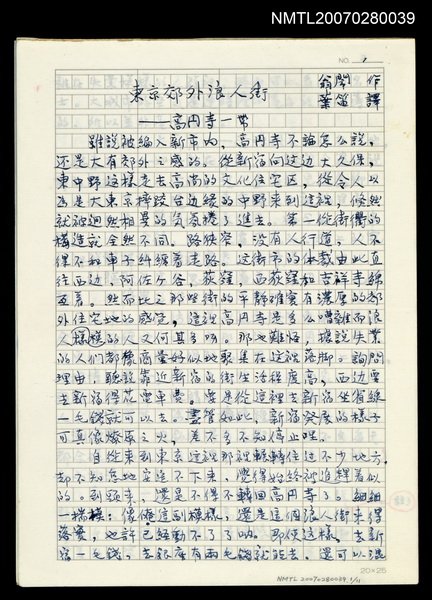 NMTL20070280039
NO. 1
東京郊外浪人街
翁鬧 作
葉笛 譯
——高円寺一帶
雖說被編入新市內,高円寺不論怎么說,
還是大有郊外之感的。從新宿向这边大久保,
東中野这樣走去高尚的文化住宅区,從令人以
為是大東京櫸跤台边緣的中野来到這裡,倏然
就被迥然相異的気氛捲了進去。第一從街衢的
構造就全然不同。路狹窄,沒有人行道,人不
得不和車子糾纏着走路。这街市的体裁由此直
往西边,阿佐ケ谷,荻窪,西荻窪和吉祥寺綿
亙着。然而比之那些街的平靜难寛有濃厚的郊
外住宅地的感觉,這裡高円寺是多么嘈雜而浪
人模樣的人又何其多呀。那也難怪,據說失業
的人们都像商量好似地聚集在这裡落脚。詢問
理由,聽說靠近新宿的街生活程度高,西边要
去新宿得花電車費。要是從這裡去新宿坐省線
一毛錢就可以去。儘管如此,新宿発展的樣子
可真像燎原之火,差不多不知停止哩。
自從来到東京這裡那裡輾轉住过不少地方,
却不知怎地安定不下来,覺得始終被追趕着似
的。到頭来,還是不得不轉回高円寺了。細細
一揣摸:像俺這副模樣,還是這個浪人街来得
落實,也許已經動不了了吶。即使這樣,去新
宿一毛錢,去銀座有兩毛錢就能去,還可以混
20×25
NMTL 20070280039 1/11